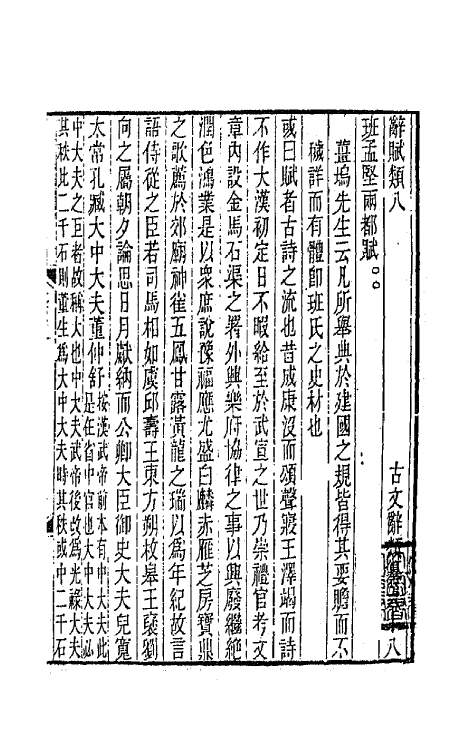 辭賦類八　古文辭類篹　八
班孟堅兩都賦
薑塢先生云凡所舉典於建國之規皆得其要贍而不
穢詳而有體卽班氏之史材也
或曰賦者古詩之流也昔成康沒而頌聲寢王澤竭而詩
不作大漢初定日不暇給至於武宣之世乃崇禮官考文
章內設金馬石渠之署外興樂府協律之事以興廢繼絕
潤色鴻業是以衆庶說豫福應尤盛白麟赤雁芝房寶鼎
之歌薦於郊廟神雀五鳳甘露黃龍之瑞以爲年紀故言
語侍從之臣若司馬相如虞邱壽王東方朔枚皋王襃劉
向之屬朝夕論思日月獻納而公卿大臣御史大夫兒寬
太常孔臧大中大夫董仲舒按漢武帝前本有中大夫此
是在省中官也大中大夫必
中大夫之臣者故稱大也中大夫武帝後改爲光祿大夫
其秩比二千石則董生爲大中大夫時其秩或中二千石